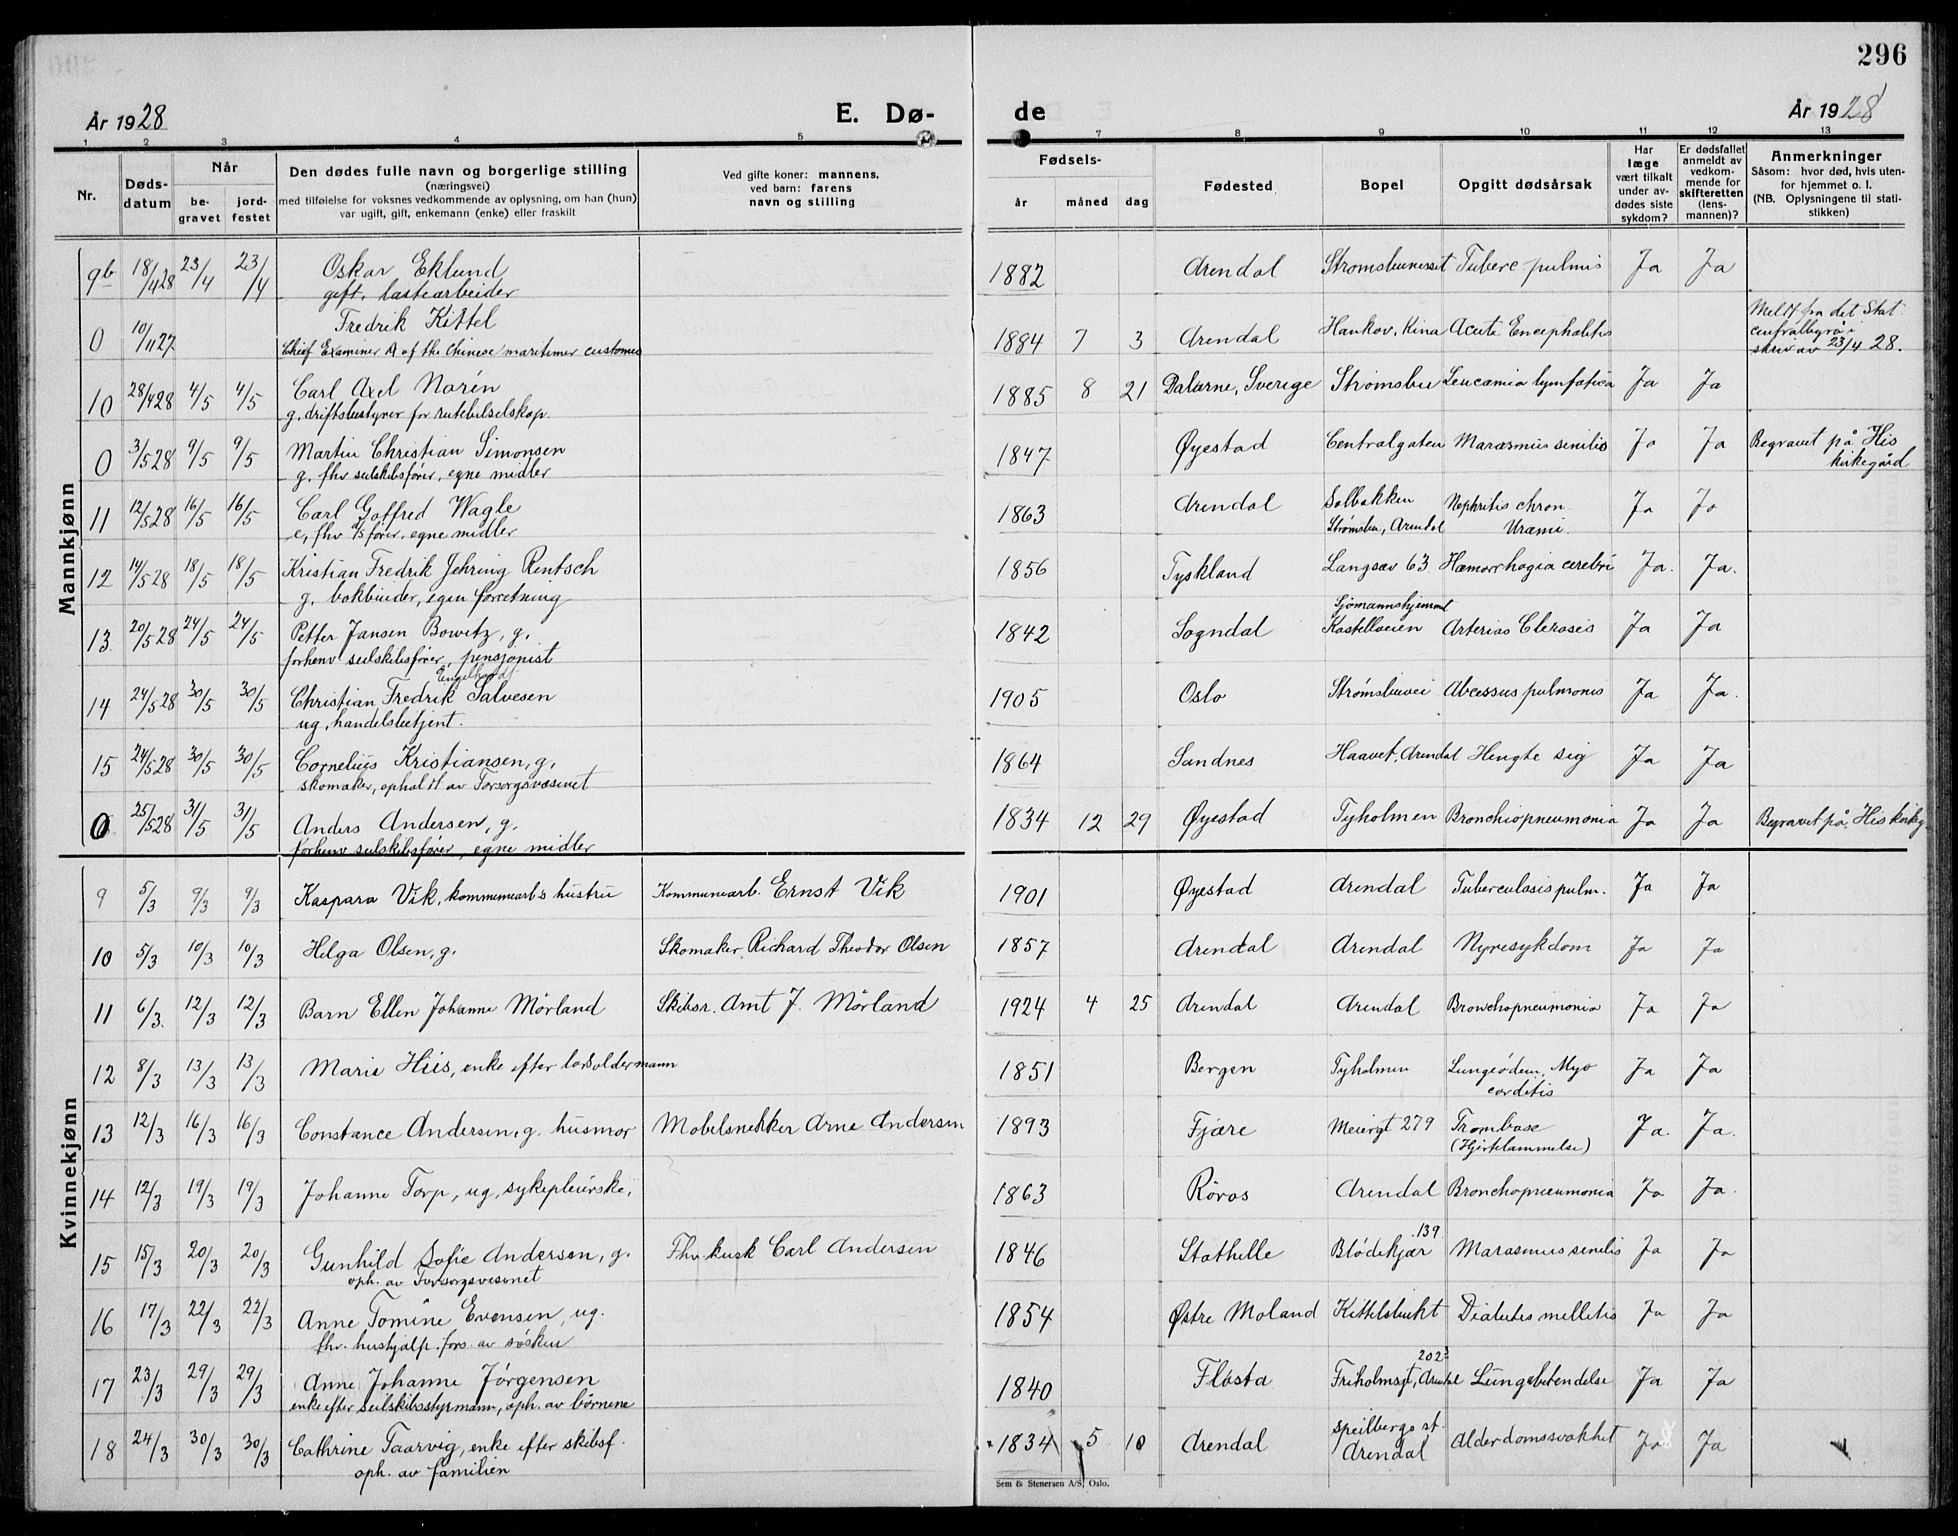 296
År 1928 E. Dø- de År 1928
1 2 3 4 5 7 8 9 10 11 12 13
Nr. Døds-datum Når be-gravet jord-festet Den dødes fulle navn og borgerlige stilling (næringsvei) med tilføielse for voksnes vedkommende av oplysning, om han (hun) var ugift, gift, enkemann (enke) eller fraskilt Ved gifte koner: mannens, ved barn: farens navn og stilling Fødsels- år måned dag Fødested Bopel Opgitt dødsårsak Har læge vært tilkalt under av-dødes siste sykdom? Er dødsfallet anmeldt av vedkom-mende for skifteretten (lens-mannen)? Anmerkninger Såsom: hvor død, hvis uten-for hjemmet o. l. (NB. Oplysningene til stati-stikken)
Mannkjønn
9b 18/4 28 23/4 23/4 Oskar Eklund 1882 Arendal Tuberc. pulmis Ja Ja
gift, lastearbeider
0 10/11 27 Fredrik Kittel 1884 7 3 Arendal Hankov, Kina Acute Encephalitis Meldt fra det Stat. centralbyrå i skriv av 23/4 28.
Chief Examiner A of the Chinese maritimer customes
10 28/4 28 4/5 4/5 Carl Axel Norén 1885 8 21 Dalarne, Sverige Strømsbu Leucæmia lymfatica Ja Ja
g, driftsbestyrer for rutebilselskap.
0 3/5 28 9/5 9/5 Martin Christian Simonsen 1847 Øyestad Centralgaten Marasmus senilis Ja Ja Begravet på His kirkegård
g, fhv seilskibsfører, egne midler
11 12/5 28 16/5 16/5 Carl Goffred Wagle 1863 Arendal Solbakken Strømsbu, Arendal Nephritis chron. Uræmi. Ja Ja
e, fhv s/s fører, egne midler
12 14/5 28 18/5 18/5 Kristian Fredrik Jehring Rentsch 1856 Tyskland Langsæv 63 Hæmorrhagia cerebri Ja. Ja.
g. bokbinder, egen forretning
13 20/5 28 24/5 24/5 Petter Jansen Bowitz, g. 1842 Sogndal Sjømannshjemmet Kastelveien Arterias Clerosis Ja Ja
forhenv seilskibsfører, pensjonist
14 24/5 28 30/5 30/5 Christian Fredrik Engelhard Salvesen 1905 Oslo Strømsbuvei Abcessus pulmonis Ja Ja.
ug, handelsbetjent.
15 24/5 28 30/5 30/5 Cornelius Kristiansen, g. 1864 Sandnes Haavet, Arendal Hengte sig Ja Ja
skomaker, opholdt av Forsorgsvæsenet
0 25/5 28 31/5 31/5 Anders Andersen, g. 1834 12 29 Øyestad Tyholmen Bronchiopneumonia Ja Ja Begravet på His kirkeg.
forhenv seilskibsfører, egne midler
Kvinnekjønn
9 5/3 9/3 9/3 Kaspara Vik, kommunearb's hustru Kommunearb. Ernst Vik 1901 Øyestad Arendal Tuberculosis pulm. Ja Ja
10 5/3 10/3 10/3 Helga Olsen, g. Skomaker Richard Theodor Olsen 1857 Arendal Arendal Nyresykdom Ja Ja
11 6/3. 12/3 12/3 Barn Ellen Johanne Mörland Skibsr. Amt J. Mörland 1924 4 25 Arendal Arendal Bronchopneumonia Ja Ja
12 8/3 13/3 13/3 Marie Hiis, enke efter losoldermann 1851 Bergen Tyholmen Lungeödem, Myocarditis Ja Ja
13 12/3 16/3 16/3 Constance Andersen, g. husmor Mobelsnekker Arne Andersen 1893 Fjære Meiergt 279 Trombose (Hjertelammelse) Ja. Ja.
14 12/3 19/3 19/3 Johanne Torp, ug, sykepleierske, 1863 Röros Arendal Bronchopneumonia Ja Ja.
15 15/3 20/3 20/3 Gunhild Sofie Andersen, g. Fhv. kusk Carl Andersen 1846 Stathelle Blödekjær 139 Marasmus senilis Ja Ja
oph. av Forsorgsvesenet
16 17/3 22/3 22/3 Anne Tomine Evensen, ug. 1854 Østre Moland Kittelsbukt Diabetes melletis Ja Ja
fhv. hushjalp. fors. av søsken
17 23/3 29/3 29/3 Anne Johanne Jörgensen 1840 Flosta Friholmsgt, Arendal Lungebetendelse Ja Ja
enke efter Seilskibsstyrmann, oph. av börnene
18 24/3 30/3 30/3 Cathrine Taarvig, enke efter skibsf. 1834 5 10 Arendal Speilbergs st. Arendal Alderdomssvakhet Ja Ja
oph. av familien
Sem & Stenersen A/S, Oslo.